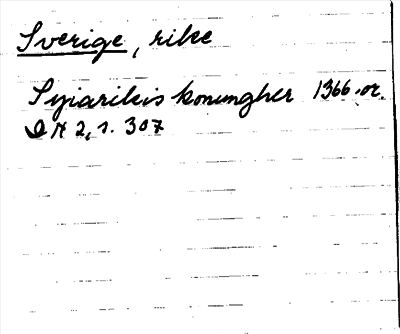 Sverige, rike
Syiarikis konungher 1366. or.
DN 2, s. 307